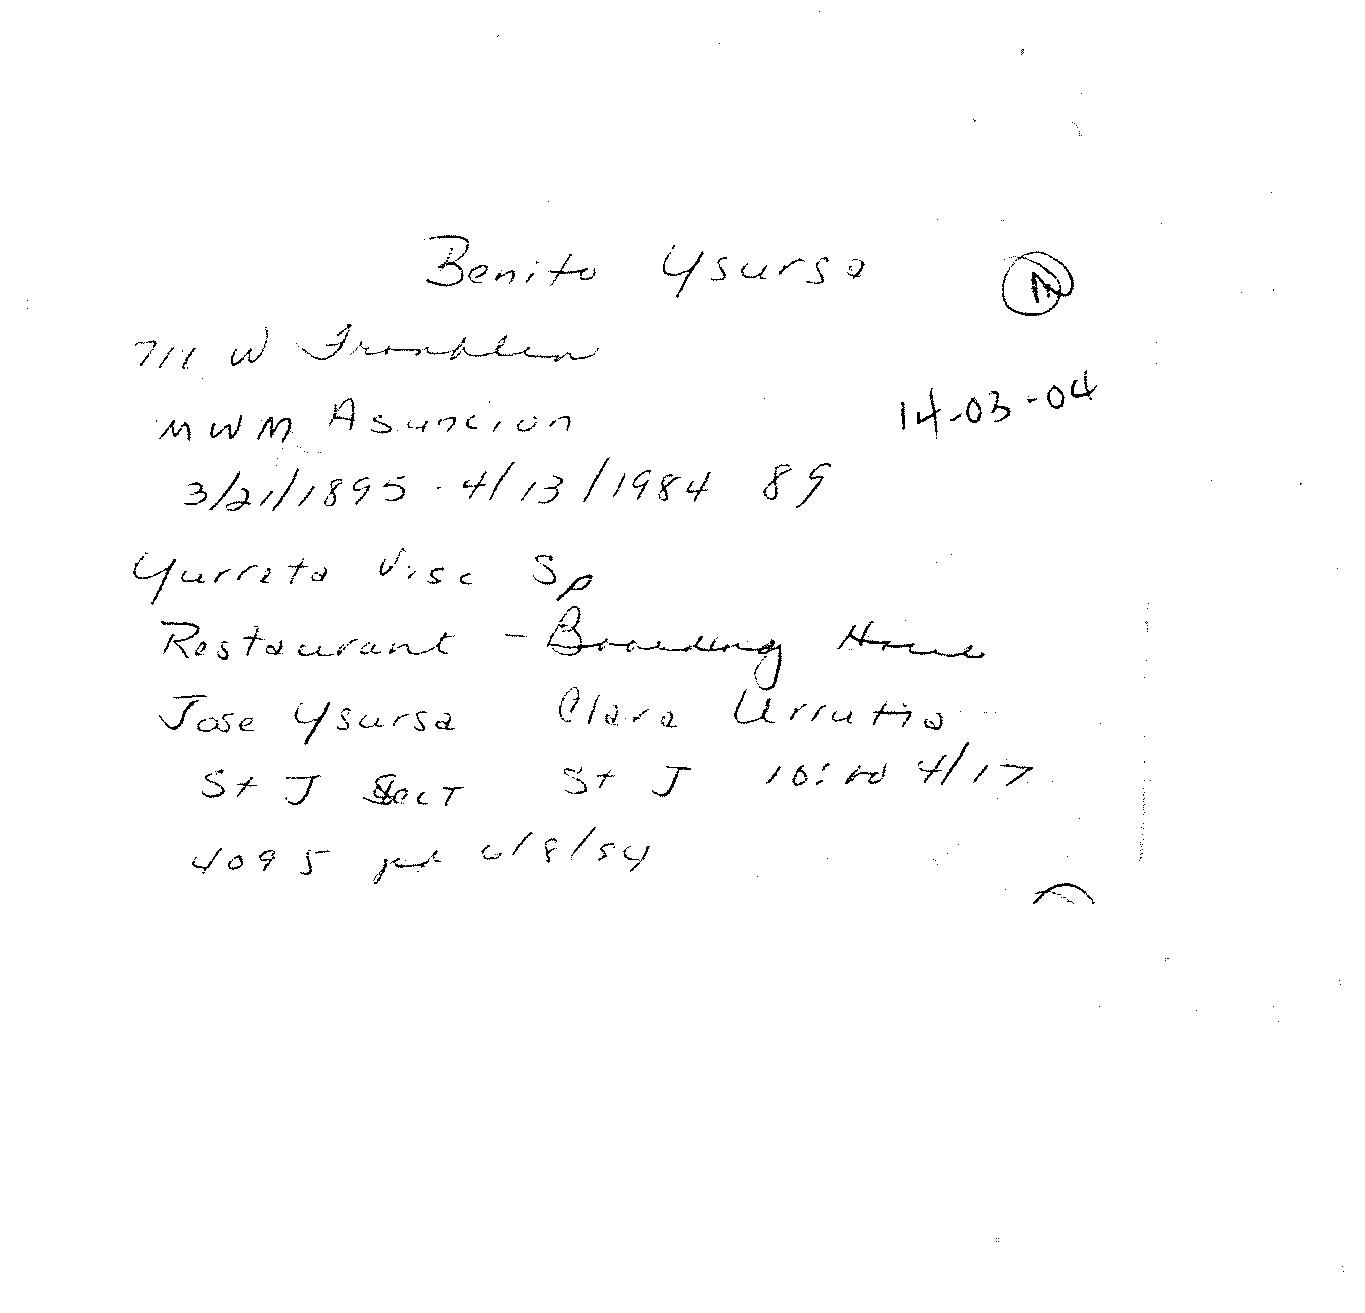 Benito Ysursa
711 W Franklin
MWM Asuncion
14-03-04
3/21/1895 - 4/13/1984 89
Yurreta Visc Sp
Restaurant - Boarding House
Jose Ysursa Clara Urrutia
St J Sect St J 10:00 4/17
4095 pd 6/8/84